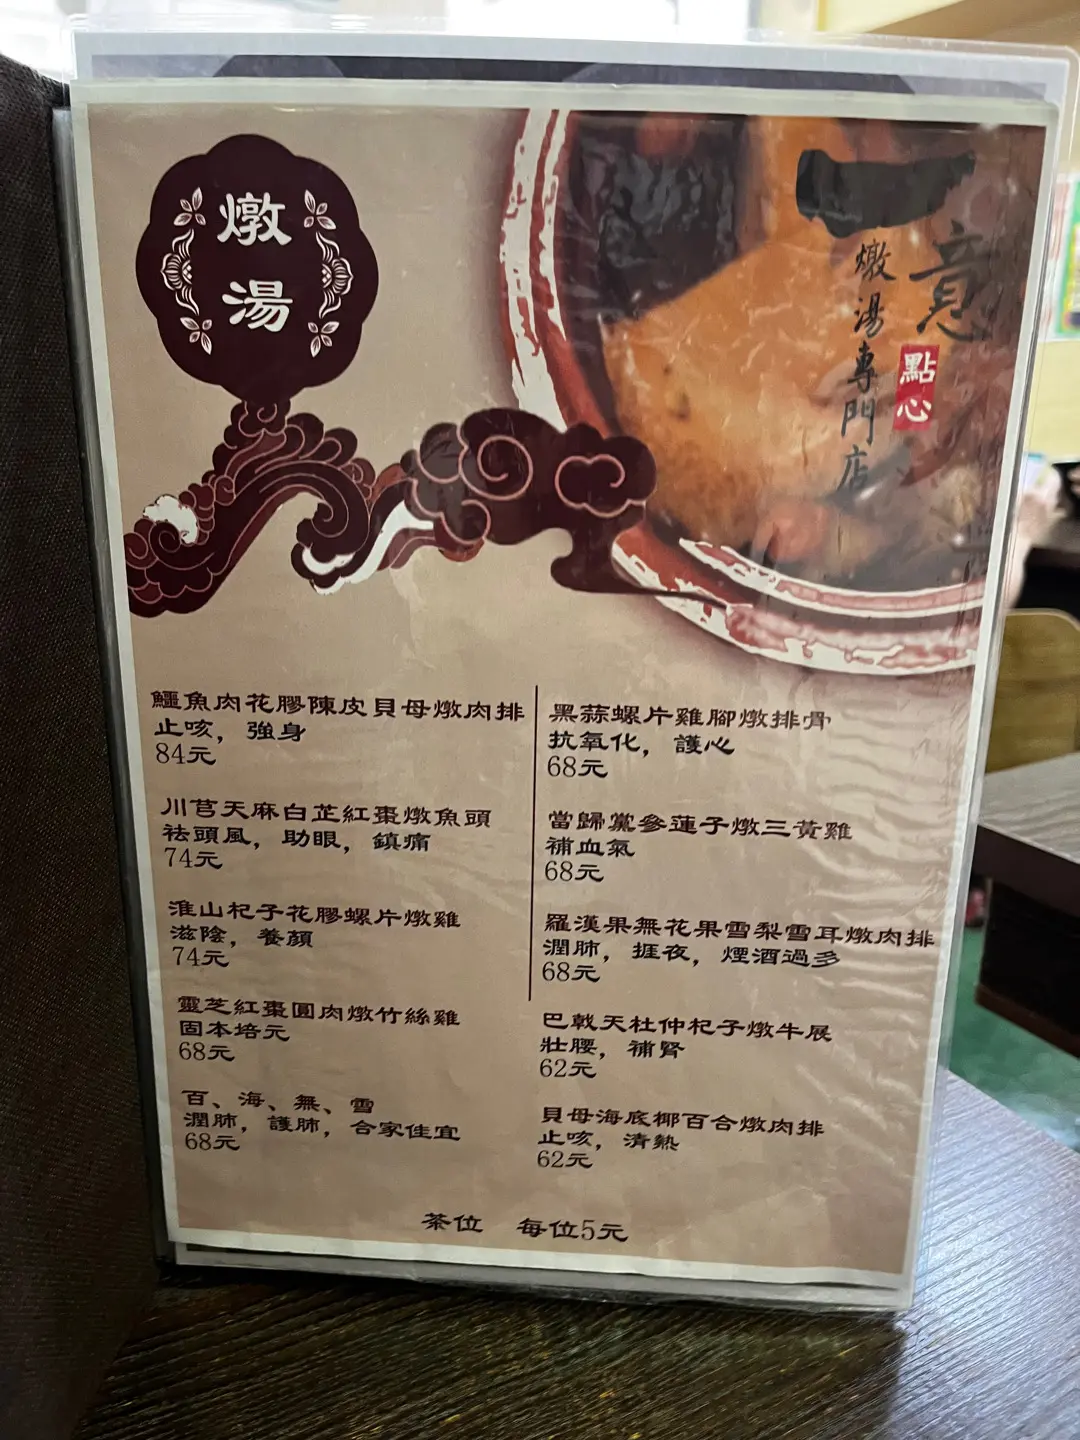 燉
湯
一
意
點心
燉湯專門店
鱷魚肉花膠陳皮貝母燉肉排
止咳，強身
84元
川芎天麻白芷紅棗燉魚頭
祛頭風，助眼，鎮痛
74元
淮山杞子花膠螺片燉雞
滋陰，養顏
74元
靈芝紅棗圓肉燉竹絲雞
固本培元
68元
百、海、無、雪
潤肺，護肺，合家佳宜
68元
黑蒜螺片雞腳燉排骨
抗氧化，護心
68元
當歸黨參蓮子燉三黃雞
補血氣
68元
羅漢果無花果雪梨雪耳燉肉排
潤肺，捱夜，煙酒過多
68元
巴戟天杜仲杞子燉牛展
壯腰，補腎
62元
貝母海底椰百合燉肉排
止咳，清熱
62元
茶位　每位5元